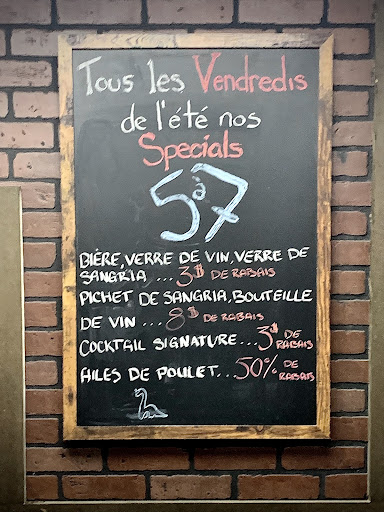 Tous les Vendredis
de l'été nos
Specials
5 à 7
BIÈRE, VERRE DE VIN, VERRE DE
SANGRIA ... 3$ DE RABAIS
PICHET DE SANGRIA, BOUTEILLE
DE VIN ... 8$ DE RABAIS
COCKTAIL SIGNATURE... 3$ DE RABAIS
AILES DE POULET... 50% DE RABAIS